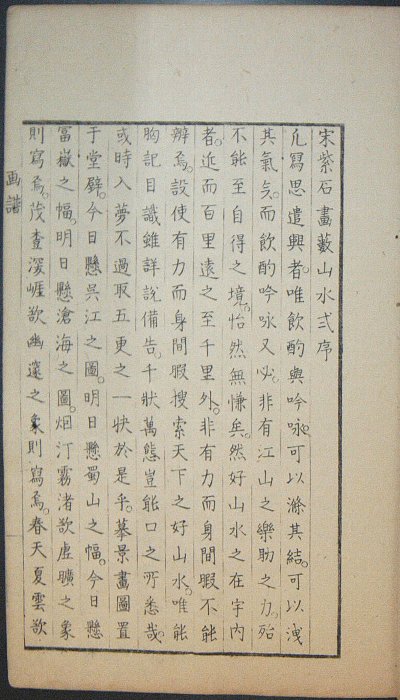 宋紫石畫藪山水弍序
凢寫思遣興者。唯飲酌與吟咏。可以滌其結。可以洩
其氣矣。而飲酌吟咏又必。非有江山之樂助之力。殆
不能至自得之境。怡然無慊矣。然好山水之在宇内
者。近而百里遠之至千里外。非有力而身間暇不能
辨焉。設使有力而身間暇搜索天下之好山水。唯能
胸記目識雖詳說備告。千狀萬態豈能口之所悉哉。
或時入夢不過取五更之一快於是乎。摹景畫圖置
于堂壁。今日懸吳江之圖。明日懸蜀山之幅。今日懸
富嶽之幅。明日懸滄海之圖。烟汀霧渚欲虛曠之象
則寫焉。茂查深崕欲幽邃之象則寫焉。春天夏雲欲
画譜